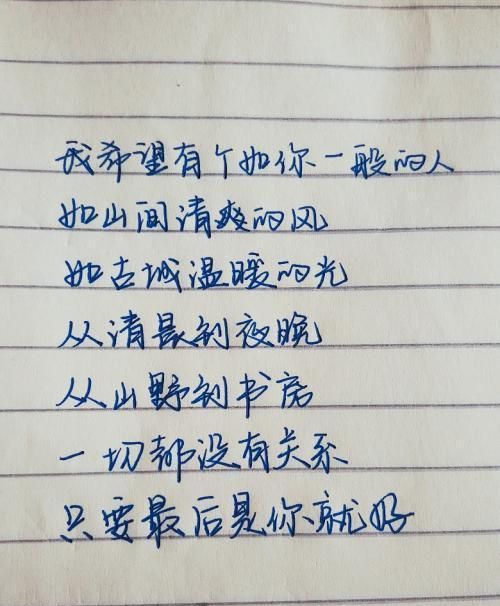 我希望有个如你一般的人
如山间清爽的风
如古城温暖的光
从清晨到夜晚
从山野到书房
一切都没有关系
只要最后是你就好